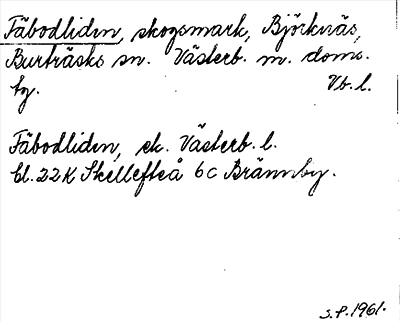 Fäbodliden, skogsmark, Björknäs,
Burträsks sn. Västerb. m. doms.
tg. Vb. l.
Fäbodliden, ek. Västerb. l.
bl. 22K Skellefteå 6c Brännby.
S.P. 1961.